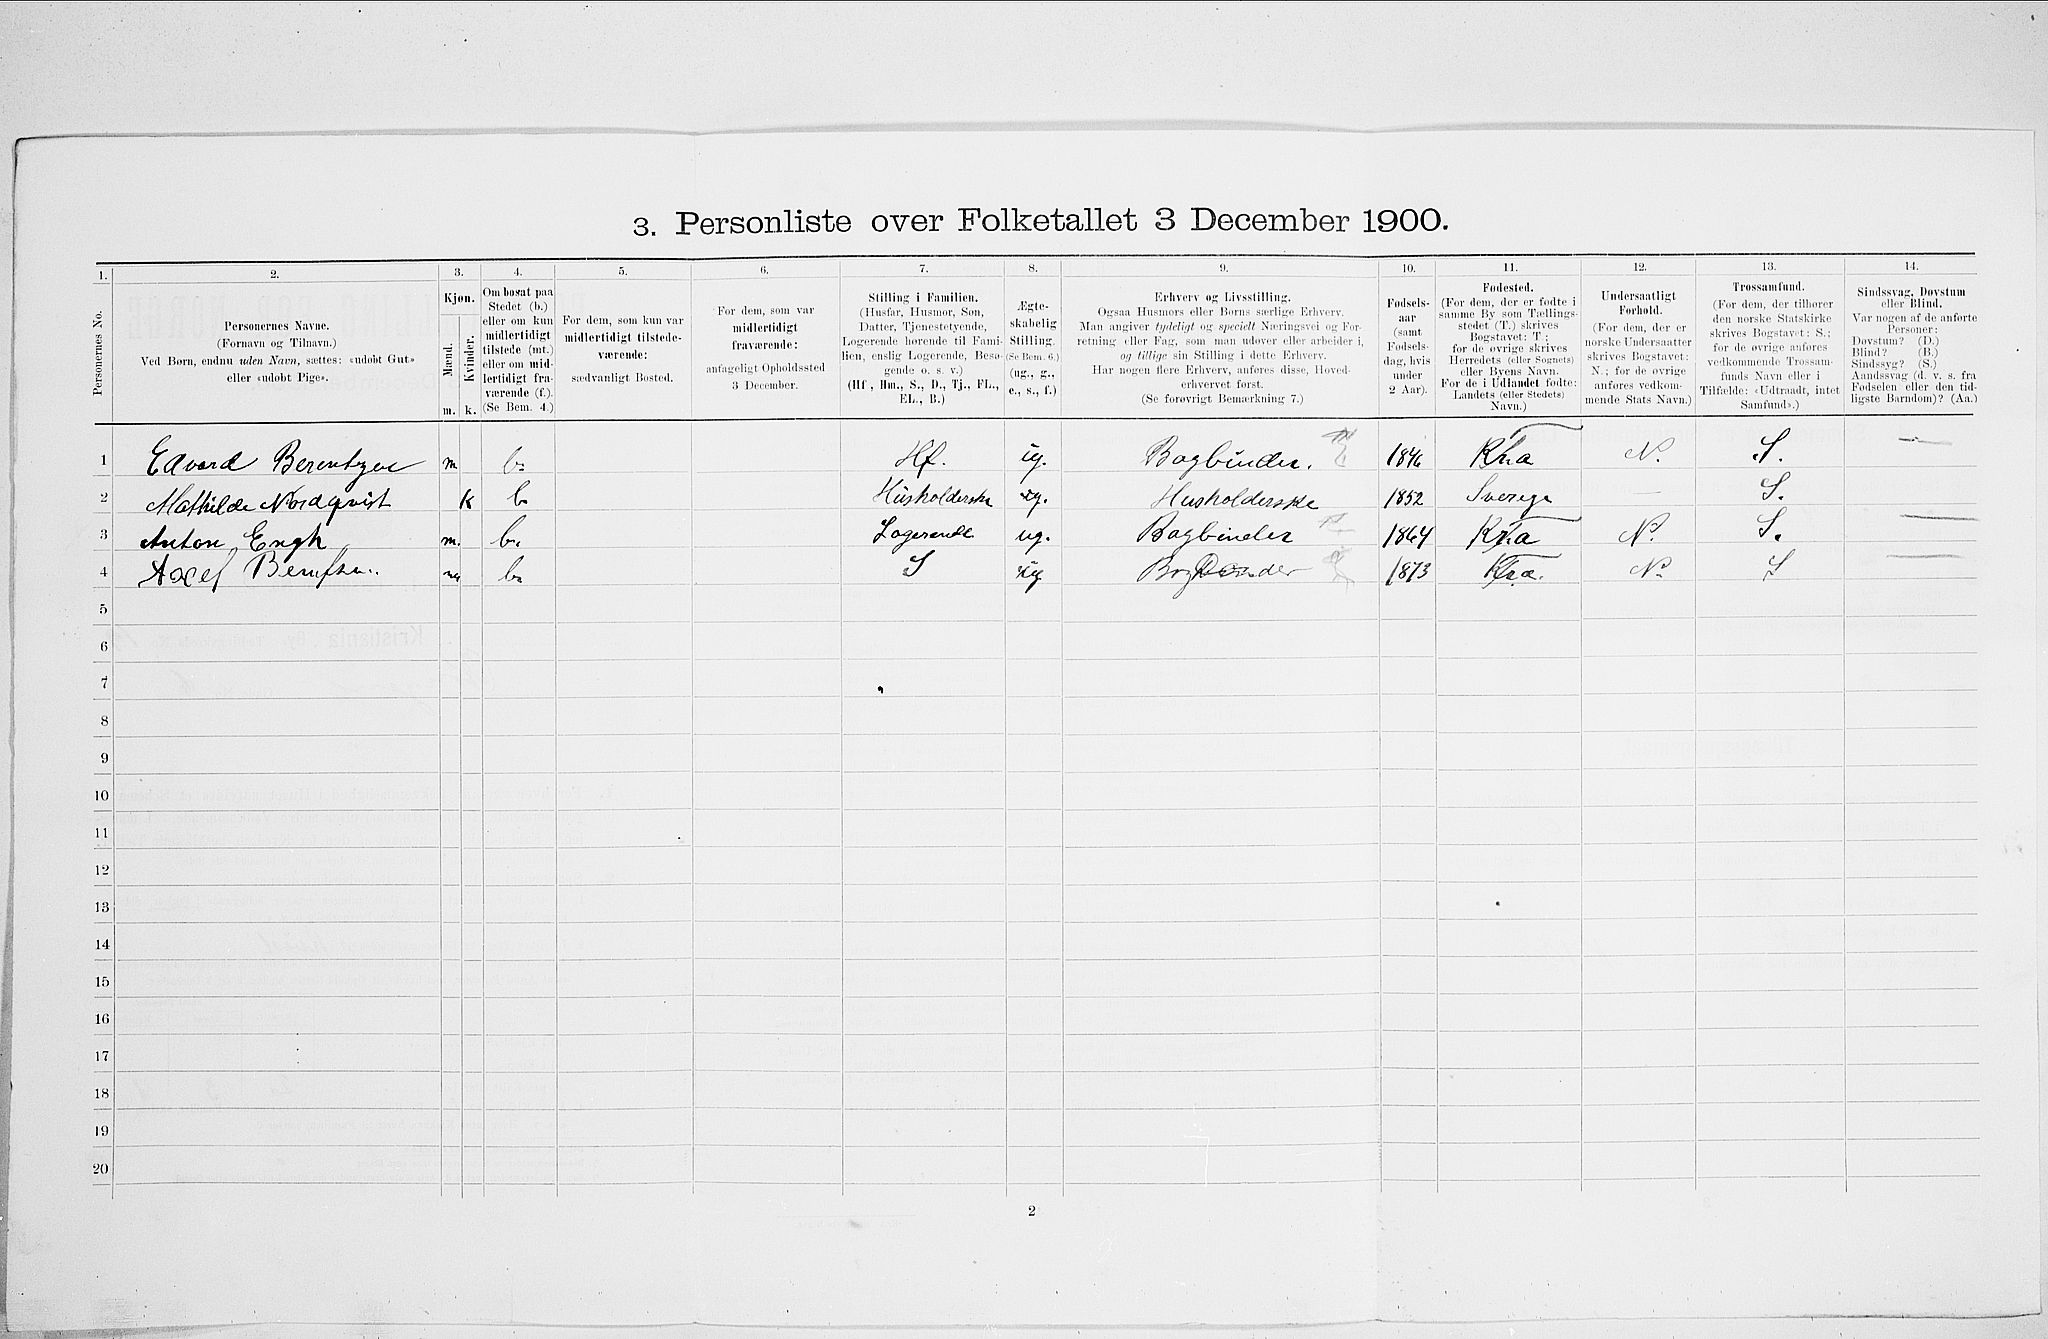 3. Personliste over Folketallet 3 December 1900.
1. 2. 3. 4. 5. 6. 7. 8. 9. 10. 11. 12. 13. 14.
Personernes No.
Personernes Navne.
(Fornavn og Tilnavn.)
Ved Børn, endnu uden Navn, sættes: «udøbt Gut»
eller «udøbt Pige».
Kjøn.
Mænd.
Kvinder.
m. k.
Om bosat paa
Stedet (b.)
eller om kun
midlertidigt
tilstede (mt.)
eller om mid-
lertidigt fra-
værende (f.).
(Se Bem. 4.)
For dem, som kun var
midlertidigt tilstede-
værende:
sædvanligt Bosted.
For dem, som var
midlertidigt
fraværende:
antageligt Opholdssted
3 December.
Stilling i Familien.
(Husfar, Husmor, Søn,
Datter, Tjenestetyende,
Logerende hørende til Fami-
lien, enslig Logerende, Besø-
gende o. s. v.)
(Hf, Hm., S., D., Tj., FL.,
EL., B.)
Ægte-
skabelig
Stilling.
(Se Bem. 6.)
(ug., g.,
e., s., f.)
Erhverv og Livsstilling.
Ogsaa Husmors eller Børns særlige Erhverv.
Man angiver tydeligt og specielt Næringsvei og For-
retning eller Fag, som man udøver eller arbeider i,
og tillige sin Stilling i dette Erhverv.
Har nogen flere Erhverv, anføres disse, Hoved-
erhvervet først.
(Se forøvrigt Bemærkning 7.)
Fødsels-
aar
(samt
Fødsels-
dag, hvis
under
2 Aar).
Fødested.
(For dem, der er fødte i
samme By som Tællings-
stedet (T.) skrives
Bogstavet: T;
for de øvrige skrives
Herredets (eller Sognets)
eller Byens Navn.
For de i Udlandet fødte:
Landets (eller Stedets)
Navn.)
Undersaatligt
Forhold.
(For dem, der er
norske Undersaatter
skrives Bogstavet:
N.; for de øvrige
anføres vedkom-
mende Stats Navn.)
Trossamfund.
(For dem, der tilhører
den norske Statskirke
skrives Bogstavet: S.;
for de øvrige anføres
vedkommende Trossam-
funds Navn eller i
Tilfælde: «Udtraadt, intet
Samfund».)
Sindssvag, Døvstum
eller Blind.
Var nogen af de anførte
Personer:
Døvstum? (D.)
Blind? (B.)
Sindssyg? (S.)
Aandssvag (d. v. s. fra
Fødselen eller den tid-
ligste Barndom)? (Aa.)
1 Edvard Berentzen m. b. Hf. ug. Bogbinder. 1846 Kra N. S. —
2 Mathilde Nordqvist K b. Husholderske ug. Husholderske 1852 Sverige — S.
3 Anton Engh m. b. Logerende ug. Bogbinder 1864 Kra N. S. —
4 Axel m b. S ug 1873 Kra. N. S —
5
6
7
8
9
10
11
12
13
14
15
16
17
18
19
20
2